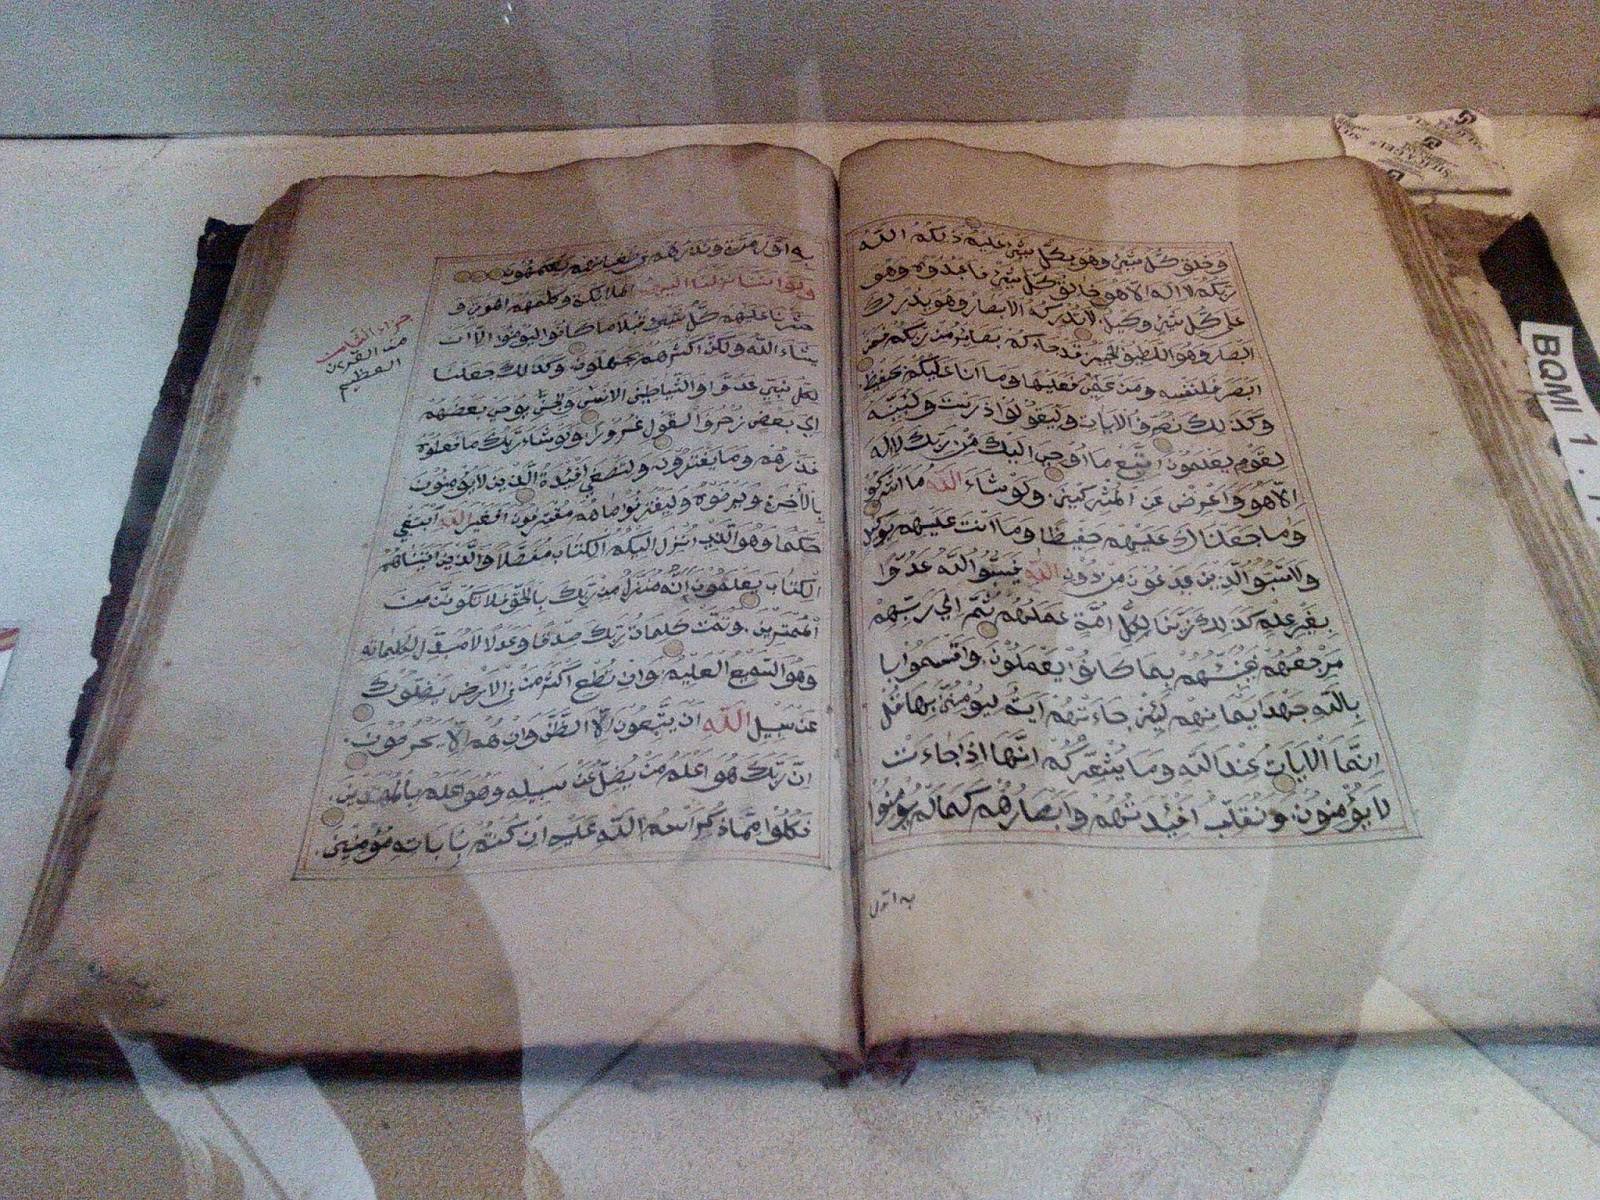 وخلق كل شيئ وهو بكل شيئ عليم ذلكم الله
ربكم لا اله الا هو خالق كل شيئ فاعبدوه وهو
على كل شيئ وكيل لا تدركه الابصار وهو يدرك
الابصار وهو اللطيف الخبير قد جاءكم بصائر من ربكم فمن
ابصر فلنفسه ومن عمي فعليها وما انا عليكم بحفيظ
وكذلك نصرف الايات وليقولوا درست ولنبينه
لقوم يعلمون اتبع ما اوحي اليك من ربك لا اله
الا هو واعرض عن المشركين ولو شاء الله ما اشركوا
وما جعلناك عليهم حفيظا وما انت عليهم بوكيل
ولا تسبوا الذين يدعون من دون الله فيسبوا الله عدوا
بغير علم كذلك زينا لكل امة عملهم ثم الى ربهم
مرجعهم فينبئهم بما كانوا يعملون واقسموا با
بالله جهد ايمانهم لئن جاءتهم اية ليؤمنن بها قل
انما الايات عند الله وما يشعركم انها اذا جاءت
لا يؤمنون ونقلب افئيدتهم وابصارهم كما لم يؤمنوا
به اول
به اول مرة ونذرهم في طغيانهم يعمهون
ولو اننا نزلنا اليهم الملايكة وكلمهم الموتى و
حشرنا عليهم كل شيئ قبلا ما كانوا ليؤمنوا الا ان
يشاء الله ولكن اكثرهم يجهلون وكذلك جعلنا
لكل نبي عدوا والشياطين الانس والجن يوحي بعضهم
الى بعض زخرف القول غرورا ولو شاء ربك ما فعلوه
فذرهم وما يفترون ولتصغى افئدة الذين لا يؤمنون
بالاخرة وليرضوه وليقترفوا ما هم مقترفون افغير الله ابتغي
حكما وهو الذي انزل اليكم الكتاب مفصلا والذين اتيناهم
الكتاب يعلمون انه منزل من ربك بالحق فلا تكونن من
الممترين وتمت كلمات ربك صدقا وعدلا لا مبدل لكلماته
وهو السميع العليم وان تطع اكثر من في الارض يضلوك
عن سبيل الله ان يتبعون الا الظن وان هم الا يخرصون
ان ربك هو اعلم من يضل عن سبيله وهو اعلم بالمهتدين
فكلوا مما ذكر اسم الله عليه ان كنتم باياته مؤمنين
من القرءان
العظيم
BQMI 1
SILICA GEL